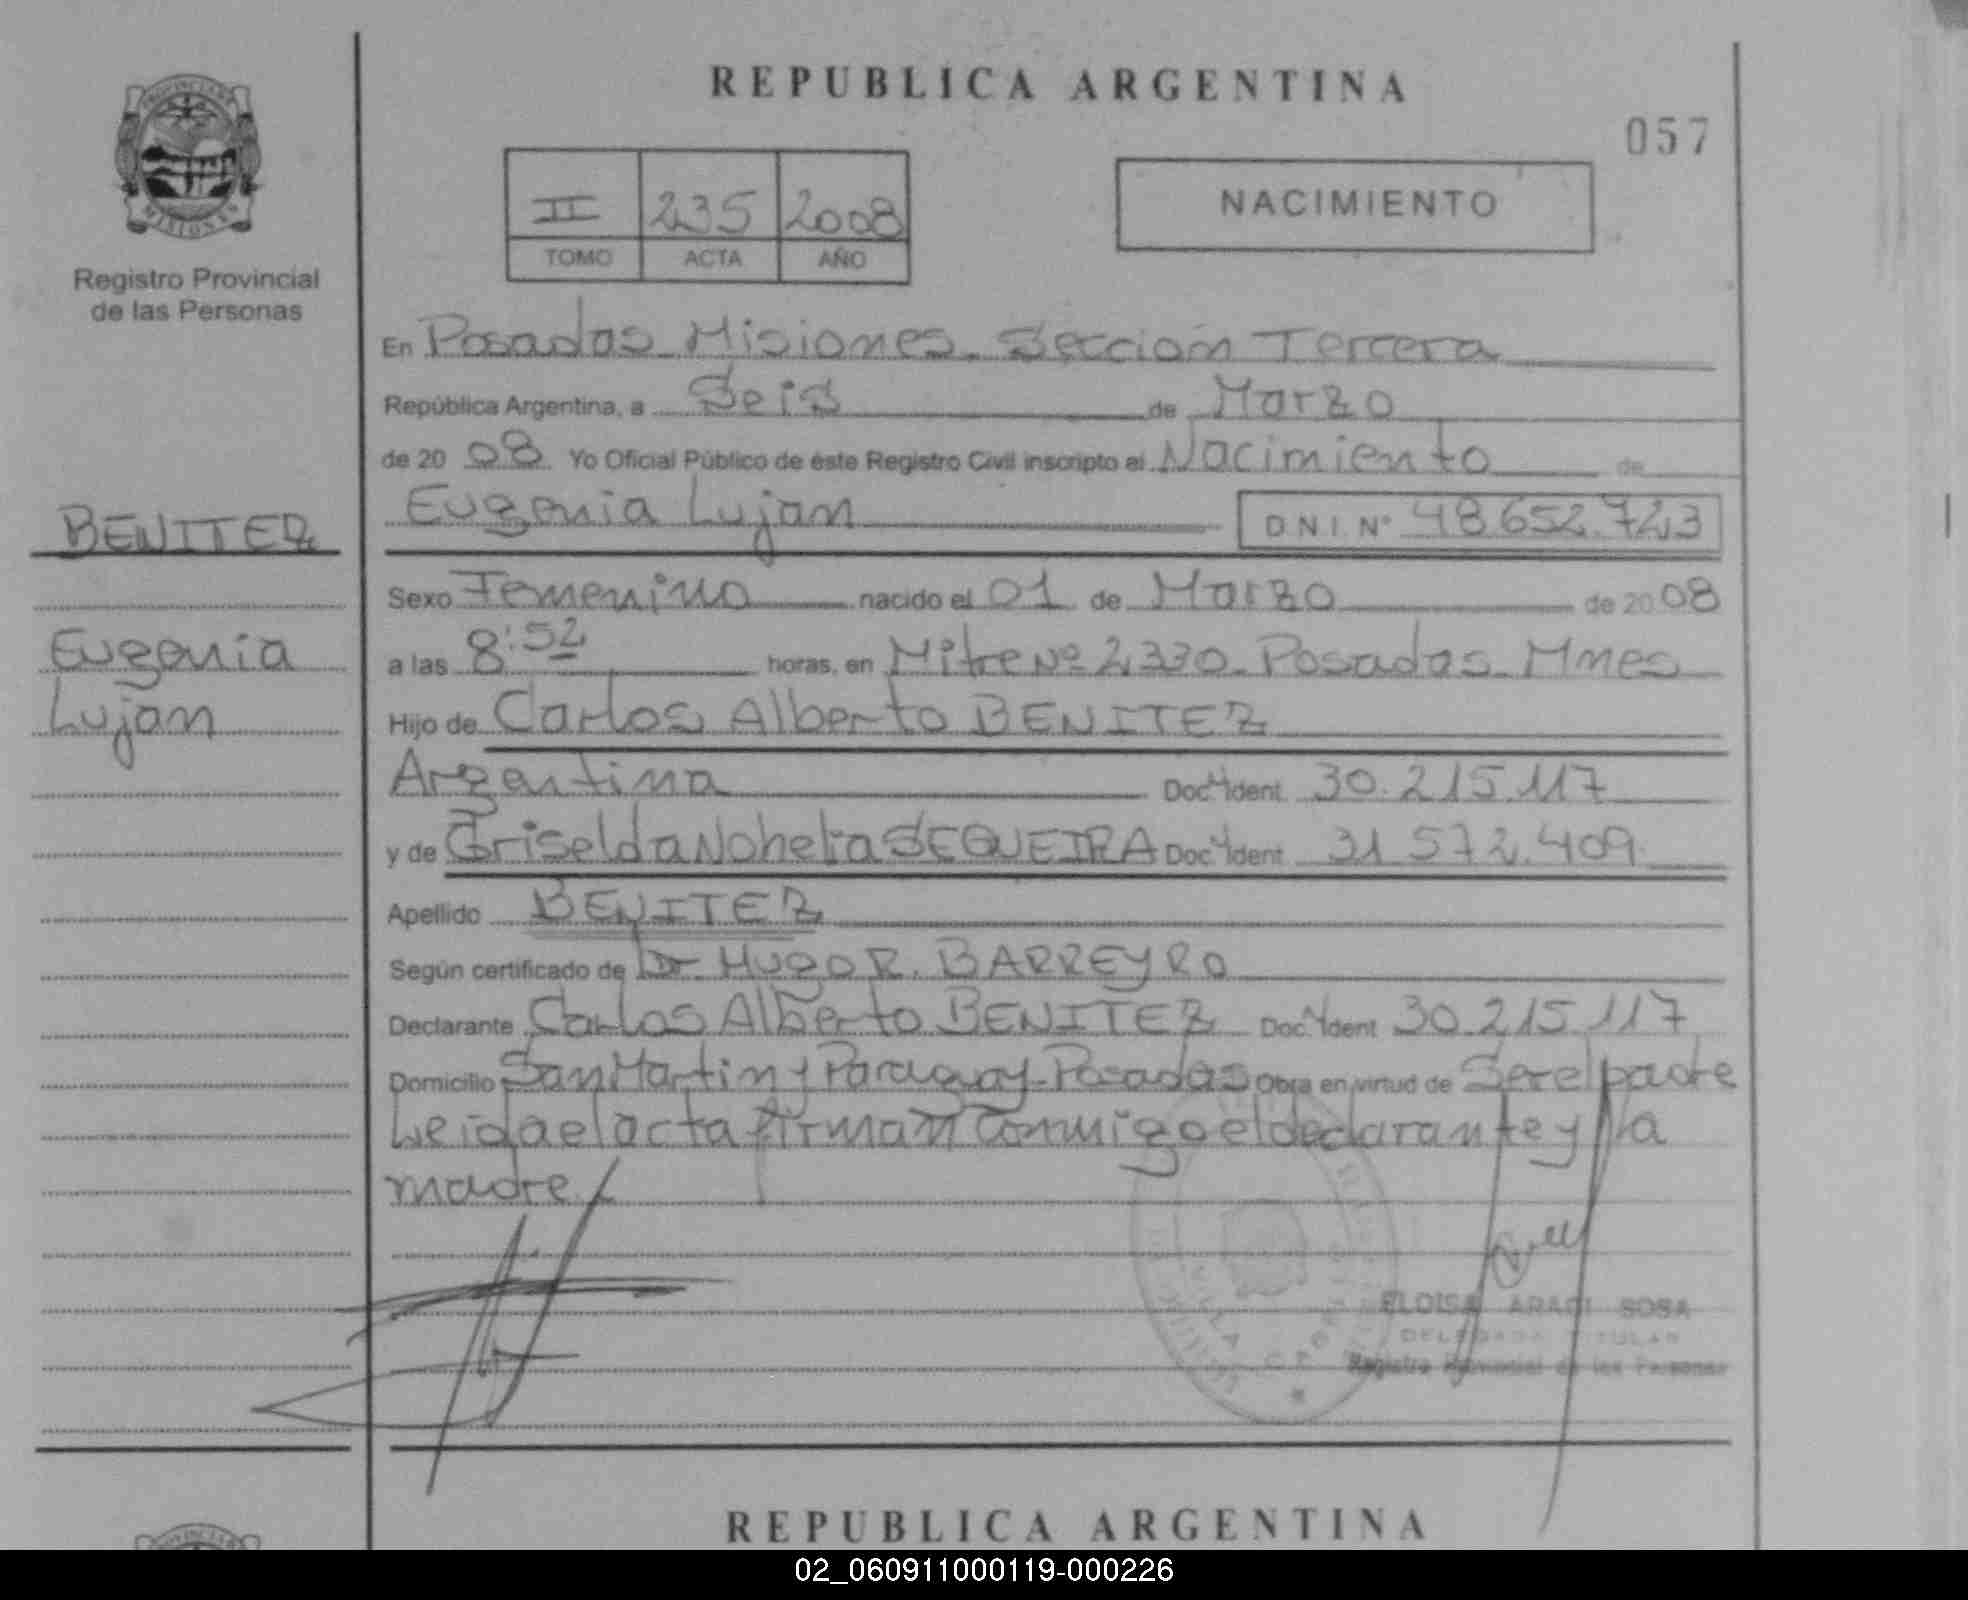 REPUBLICA ARGENTINA
057
II 235 2008
TOMO ACTA AÑO
NACIMIENTO
PROVINCIA DE
MISIONES
Registro Provincial
de las Personas
En Posadas Misiones. Sección Tercera
República Argentina, a Seis de Marzo
de 20 08 Yo Oficial Público de éste Registro Civil inscripto el Nacimiento de
Eugenia Lujan D.N.I. Nº 48.652.723
BENITEZ
Eugenia
Lujan
Sexo Femenino nacido el 01 de Marzo de 20 08
a las 8:52 horas, en Mitre Nº 2330 Posadas Mnes
Hijo de Carlos Alberto BENITEZ
Argentina Doc. Ident. 30.215.117
y de Griselda Nohelia SEQUEIRA Doc. Ident. 31.572.409
Apellido BENITEZ
Según certificado de Dr. HUGO R. BARREYRO
Declarante Carlos Alberto BENITEZ Doc. Ident 30.215.117
Domicilio San Martin y Paraguay-Posadas Obra en virtud de Ser el padre
Leida el acta firman conmigo el declarante y la
madre
ELOISA ARACI SOSA
DELEGADA TITULAR
Registro Provincial de las Personas
REPUBLICA ARGENTINA
02_060911000119-000226